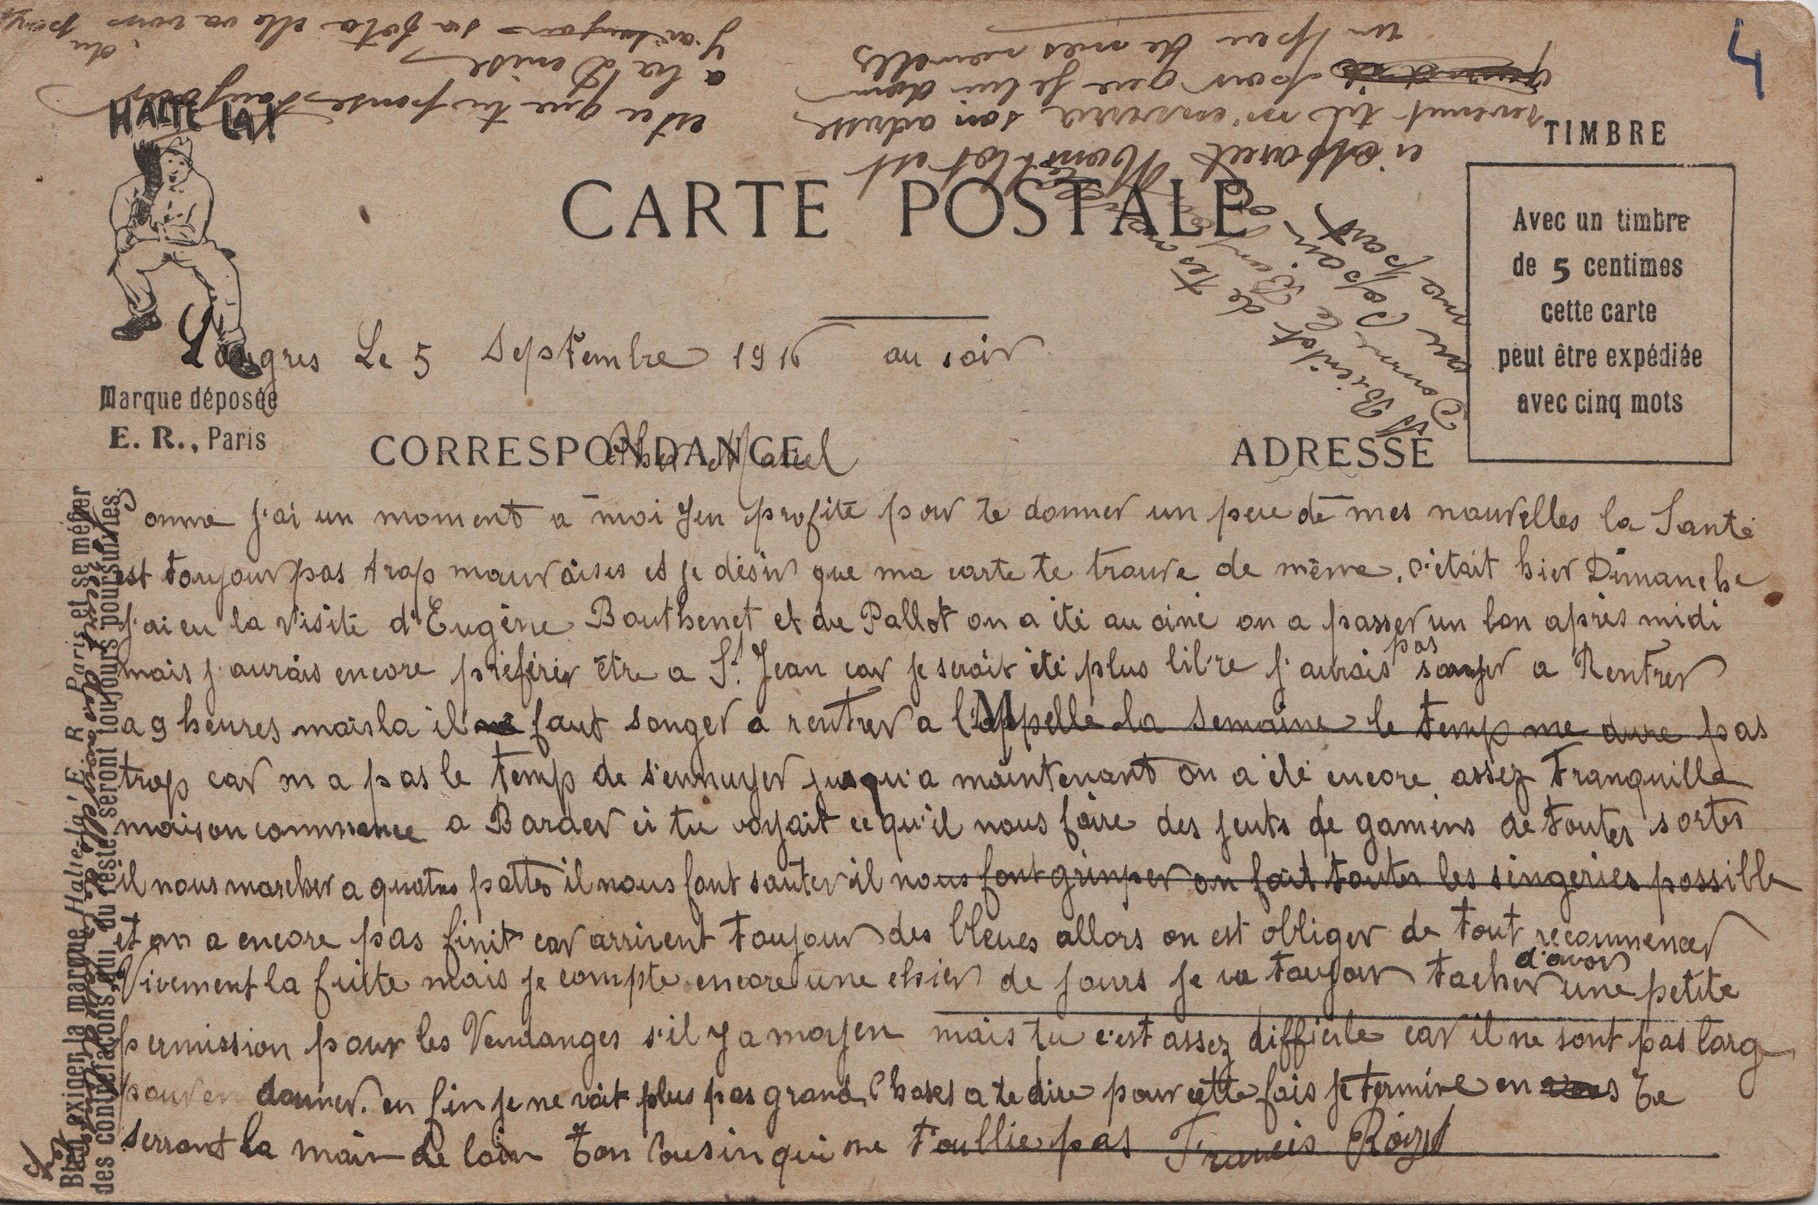 4
HALTE LA!
CARTE POSTALE
TIMBRE
Avec un timbre
de 5 centimes
cette carte
peut être expédiée
avec cinq mots
Marque déposée
E. R., Paris
CORRESPONDANCE
ADRESSE
Langres Le 5 Septembre 1916 au soir
Cher Marcel
Comme j'ai un moment a moi j'en profite pour te donner un peu de mes nouvelles la Santé
est toujour pas trop mauvaises et je désir que ma carte te trouve de même. c'était hier Dimanche
j'ai eu la visite d'Eugène Bouthenet et de Pallot on a été au ciné on a passer un bon après midi
mais j'aurais encore préférér être a St Jean car je serait été plus libre j'aurais pas songer a Rentrer
a 9 heures mais la il faut songer a rentrer a l'appelle la semaine le temp me dure pas
trop car on a pas le temp de s'ennuyer jusqu'a maintenant on a été encore assez tranquille
mais on commence a Barder si tu voyait ce qu'il nous faire des jeuts de gamins de toutes sortes
il nous marcher a quatres pattes il nous font sauter il nous font grimper on fait toutes les singeries possible
et on a encore pas finit car arrivent toujour des bleues allors on est obliger de tout recommencer
Vivement la fuitte mais je compte encore une chier de jours je va toujour tacher d'avoir une petite
permission pour les Vendanges s'il y a moyen mais tu c'est assez difficile car il ne sont pas larg
pour en donner. en fin je ne voit plus pas grand Choses a te dire pour cette fois je termine en te
serrant la main de loin Ton Cousin qui ne t'oullie pas Francis
Bien exiger la marque Halte-là! E R Paris et se méfier
des contrefaçons qui, du reste seront toujours poursuivies.
A Bientôt de tes
Donne le Bonjour
au Papa
ma part
est
revenut til m'enverra son adresse
pour que je lui donne
un peu de mes nouvelles
est ce que tu pense toujours
a la Denise
j'ai toujours sa foto elle va